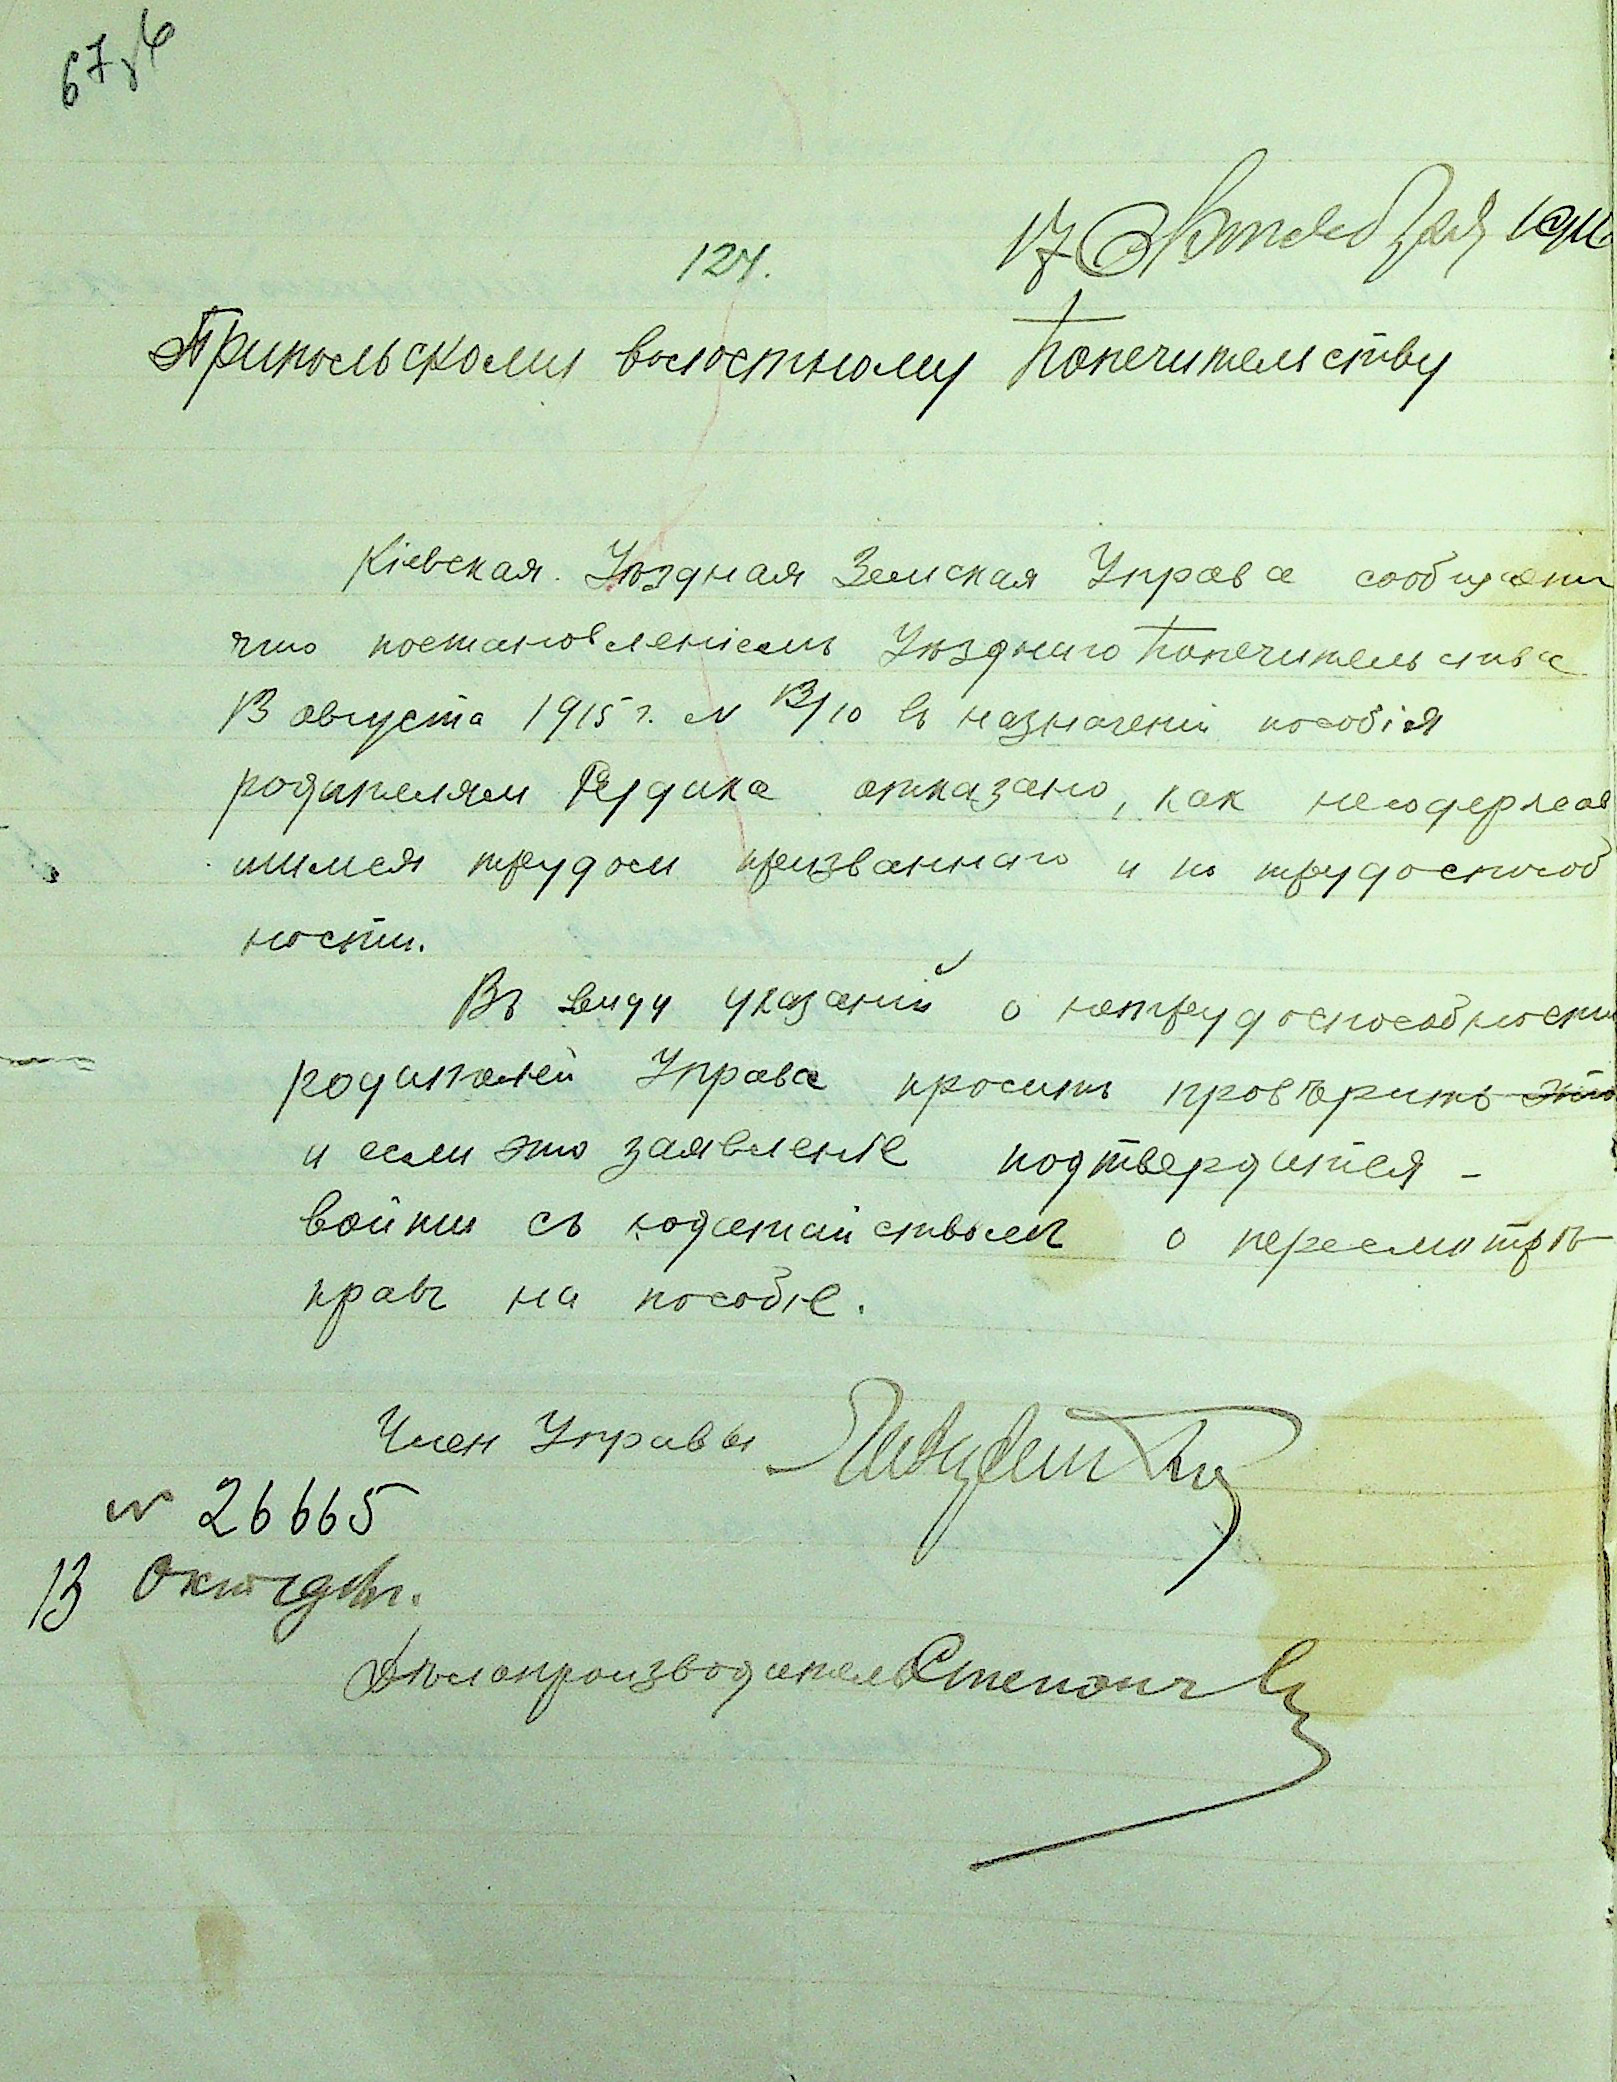 17 Октября 191
124.
Трипольскому волостному Попечительству
Кіевская Уѣздная Земская Управа сообщаетъ
что постановленіемъ Уѣзднаго Попечительства
13 августа 1915 г. № 13/10 въ назначеніи пособія
родителям Рудика отказано, как несодержав
шимся трудом призваннаго и по трудоспособ
ности.
Въ виду указаній о нетрудоспособности
родителей Управа проситъ провѣрить это
и если это заявленіе подтвердится -
войти съ ходатайствомъ о пересмотрѣ
правъ на пособіе.
Член Управы
№ 26665
13 Октября.
Дѣлопроизводитель